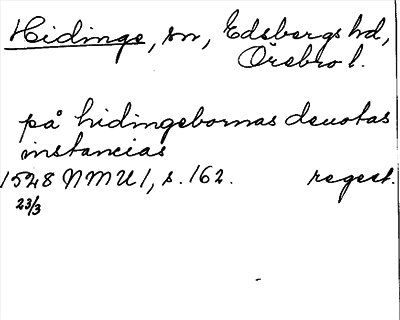 Hidinge, sn, Edsbergs hd,
Örebro l.
på hidingebornas devotas
instancias
1528 NMU 1, s. 162. regest.
23/3